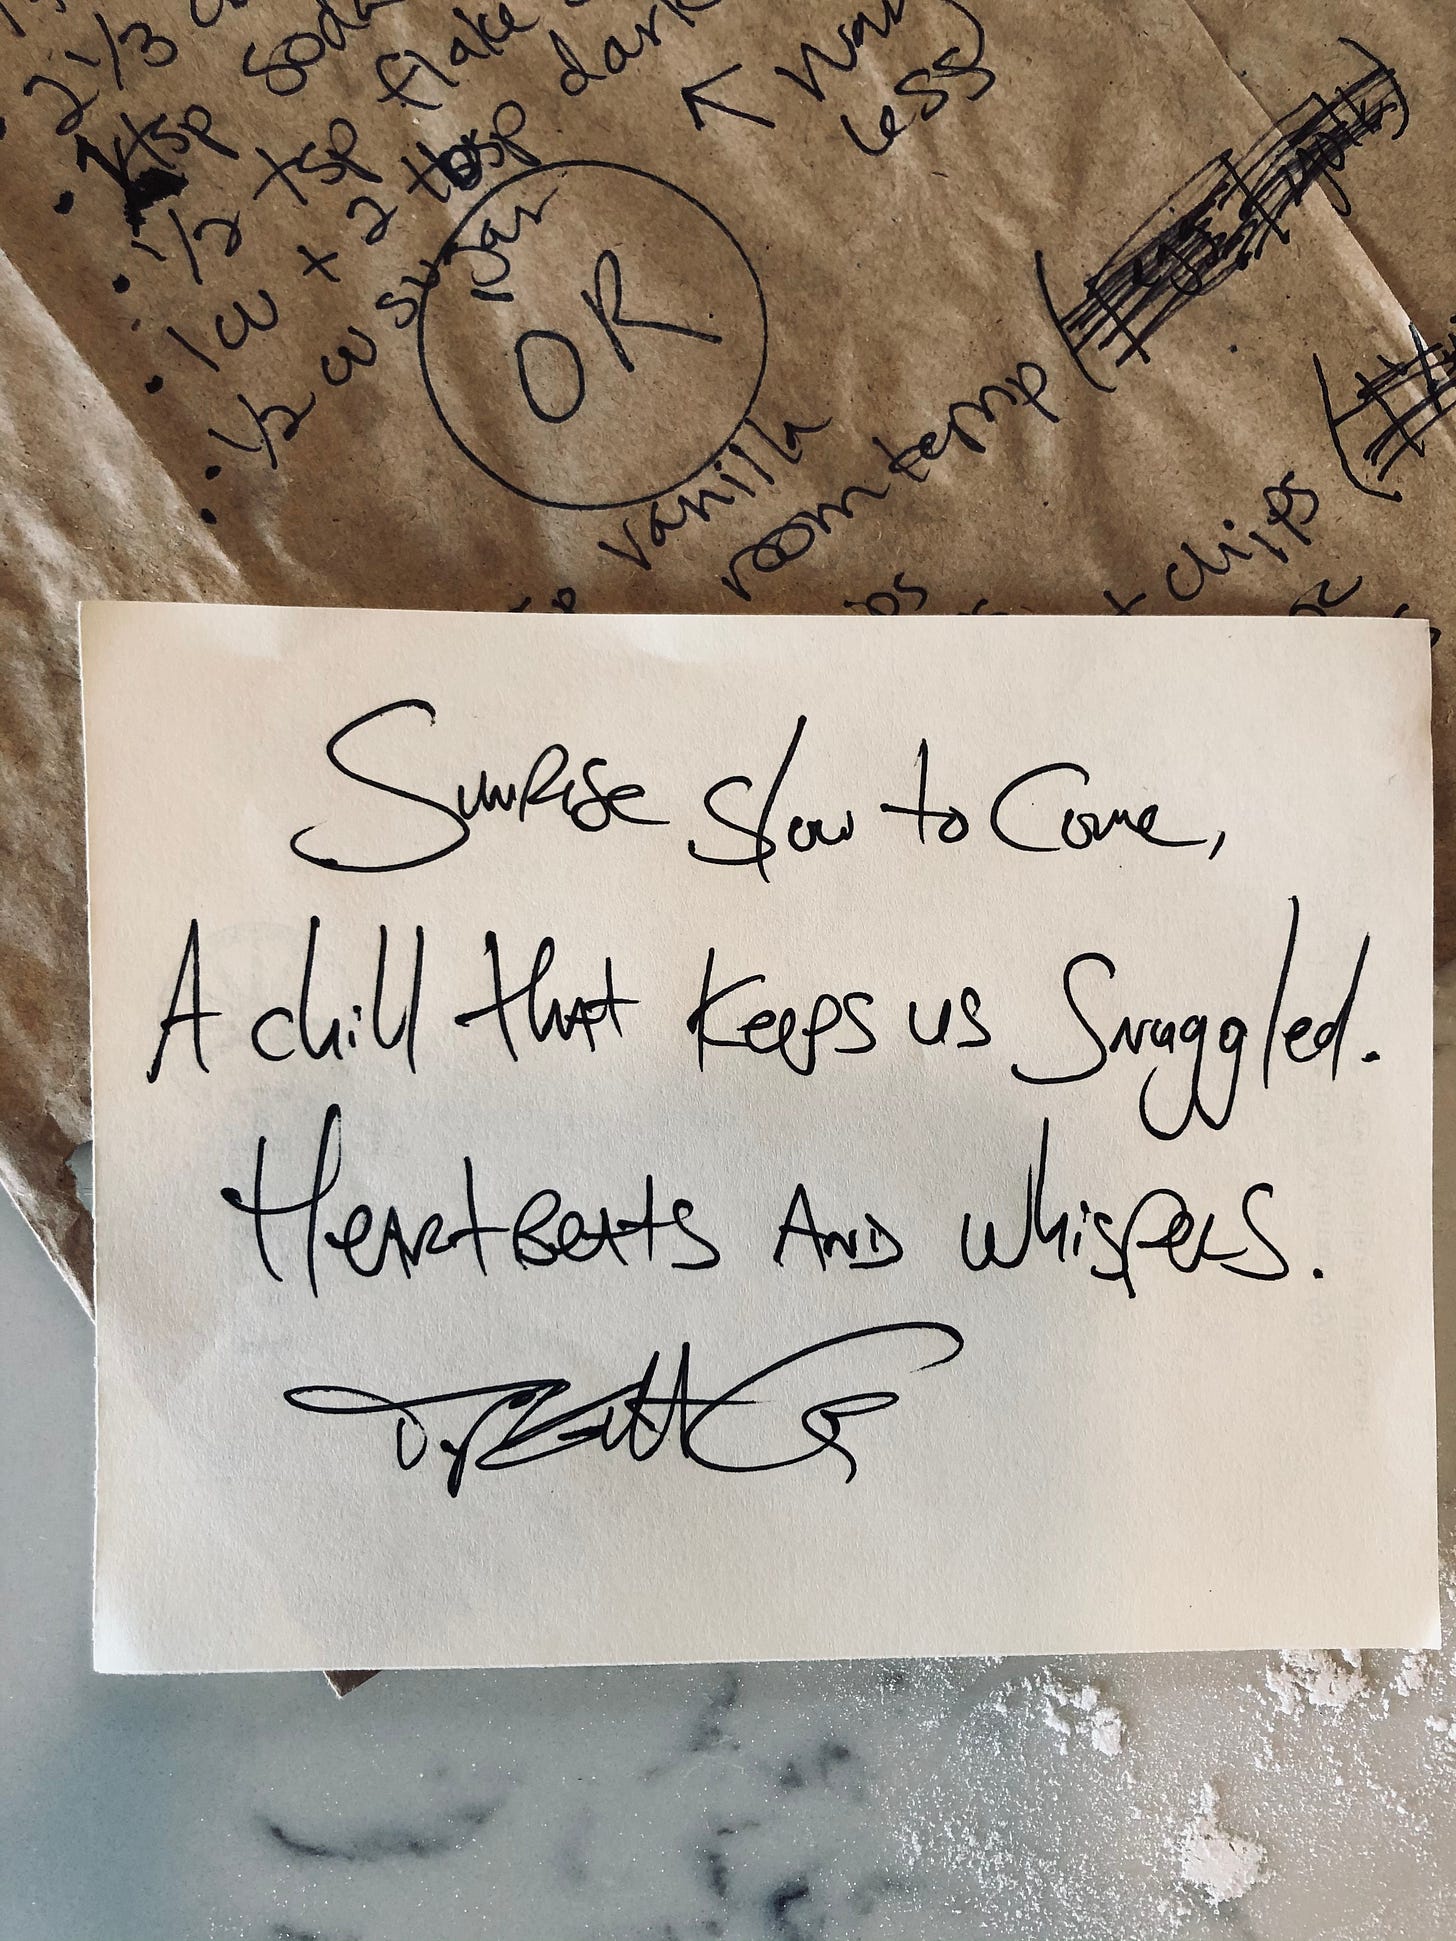 2 1/3
tsp soda
1/2 tsp flake
1 cu + 2 tbsp dark
1/2 cu sugar
less
OR
vanilla
room temp
chips
Sunrise slow to come,
A chill that keeps us snuggled.
Heartbeats and whispers.